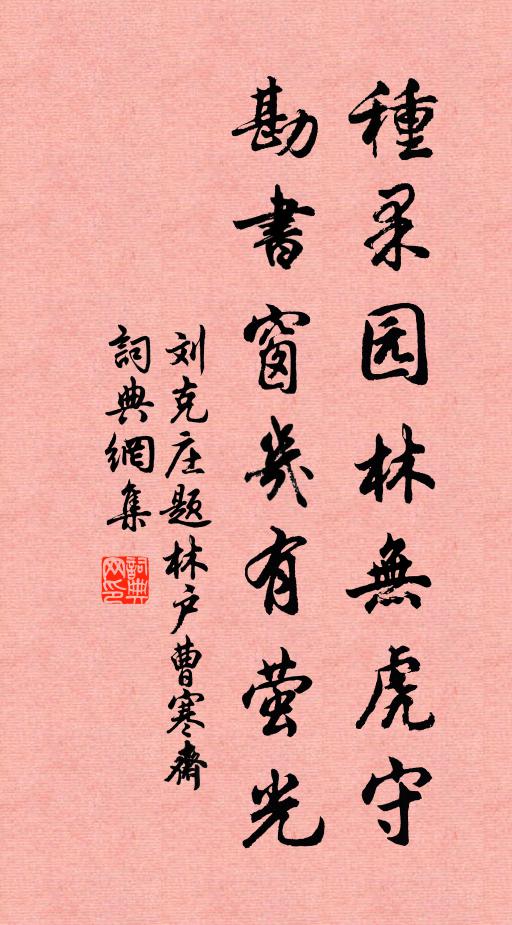 種果园林無虎守
勘書窗几有萤光
刘克庄题林户曹寒齋
詞典網集
詞典网印